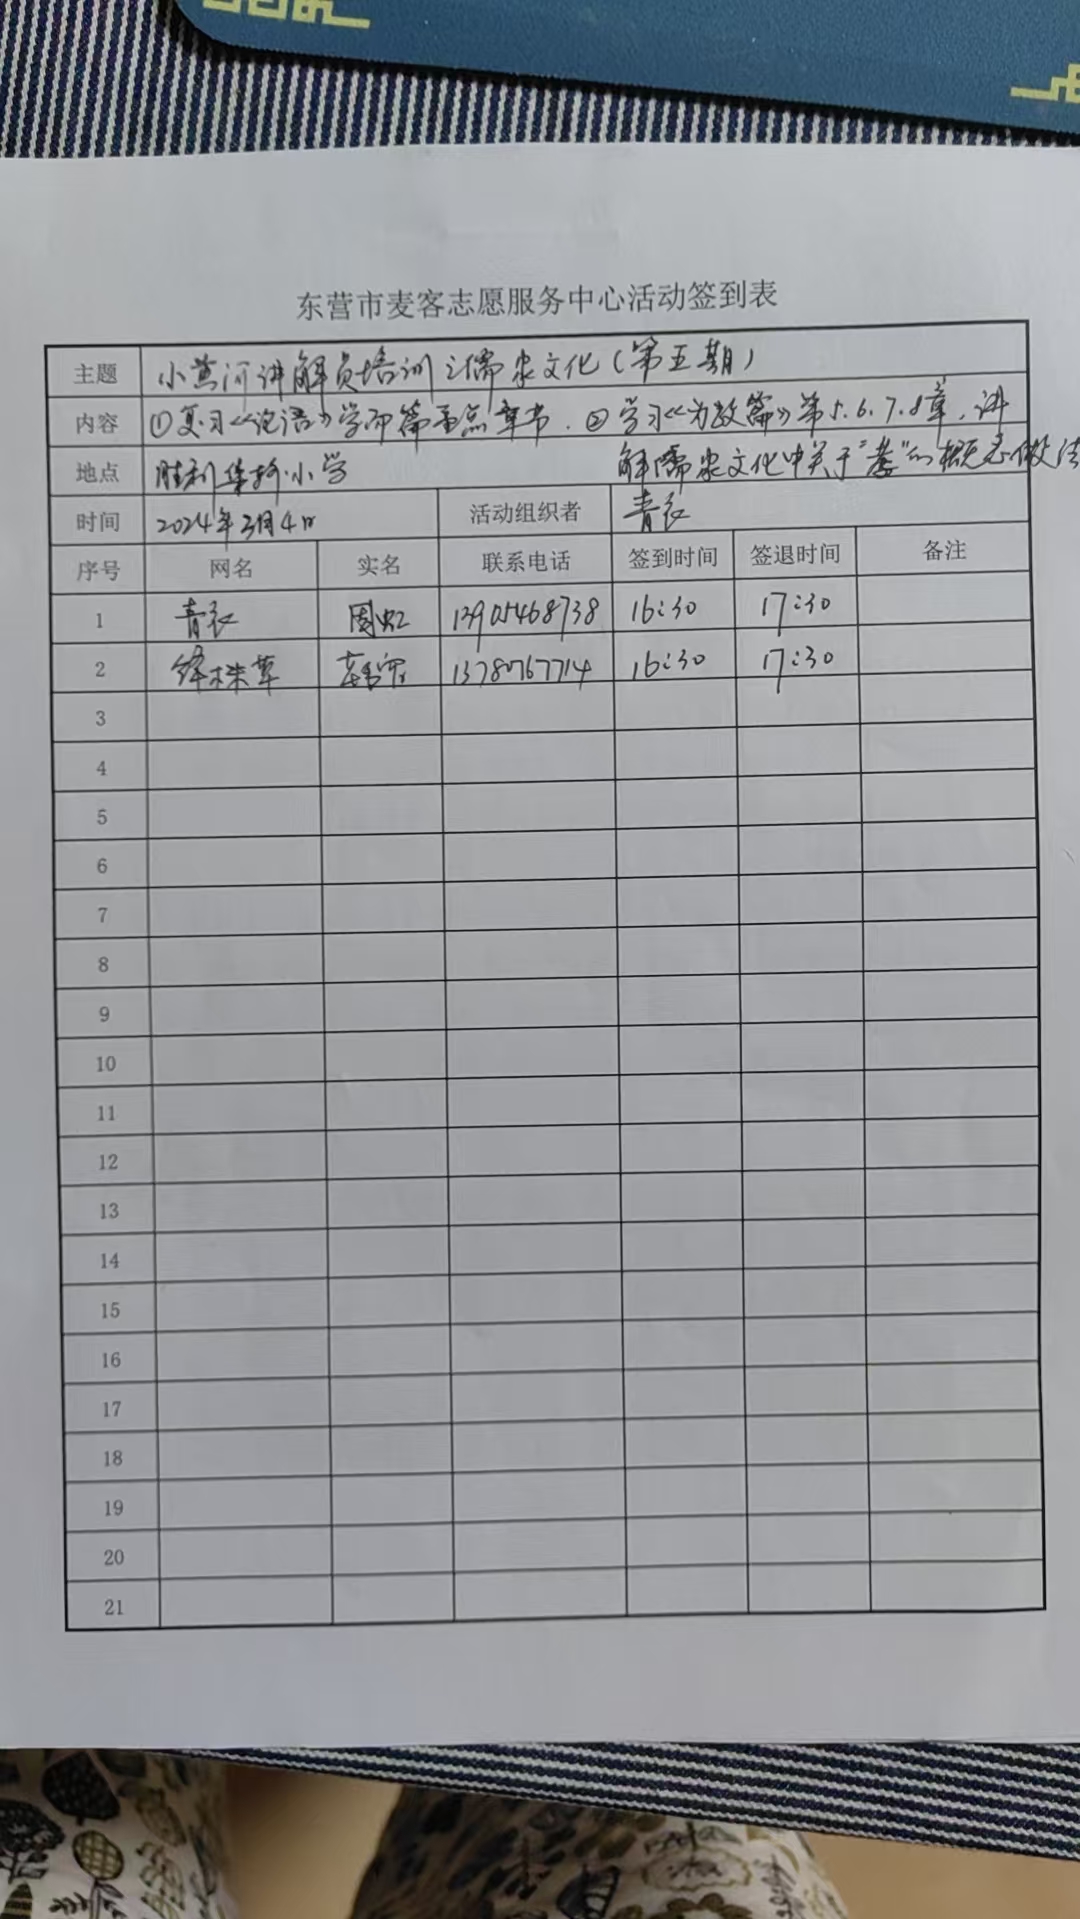 东营市麦客志愿服务中心活动签到表
主题 小黄河讲解员培训之儒家文化(第五期)
内容 ①复习《论语》学而篇重点章节.②学习《为政篇》第5.6.7.8章,讲
解儒家文化中关于"孝"的概念做法
地点 胜利集输小学
时间 2024年3月4日 活动组织者 青衣
序号 网名 实名 联系电话 签到时间 签退时间 备注
1 青衣 周虹 13905468738 16:30 17:30
2 绛株草 13780767714 16:30 17:30
3
4
5
6
7
8
9
10
11
12
13
14
15
16
17
18
19
20
21